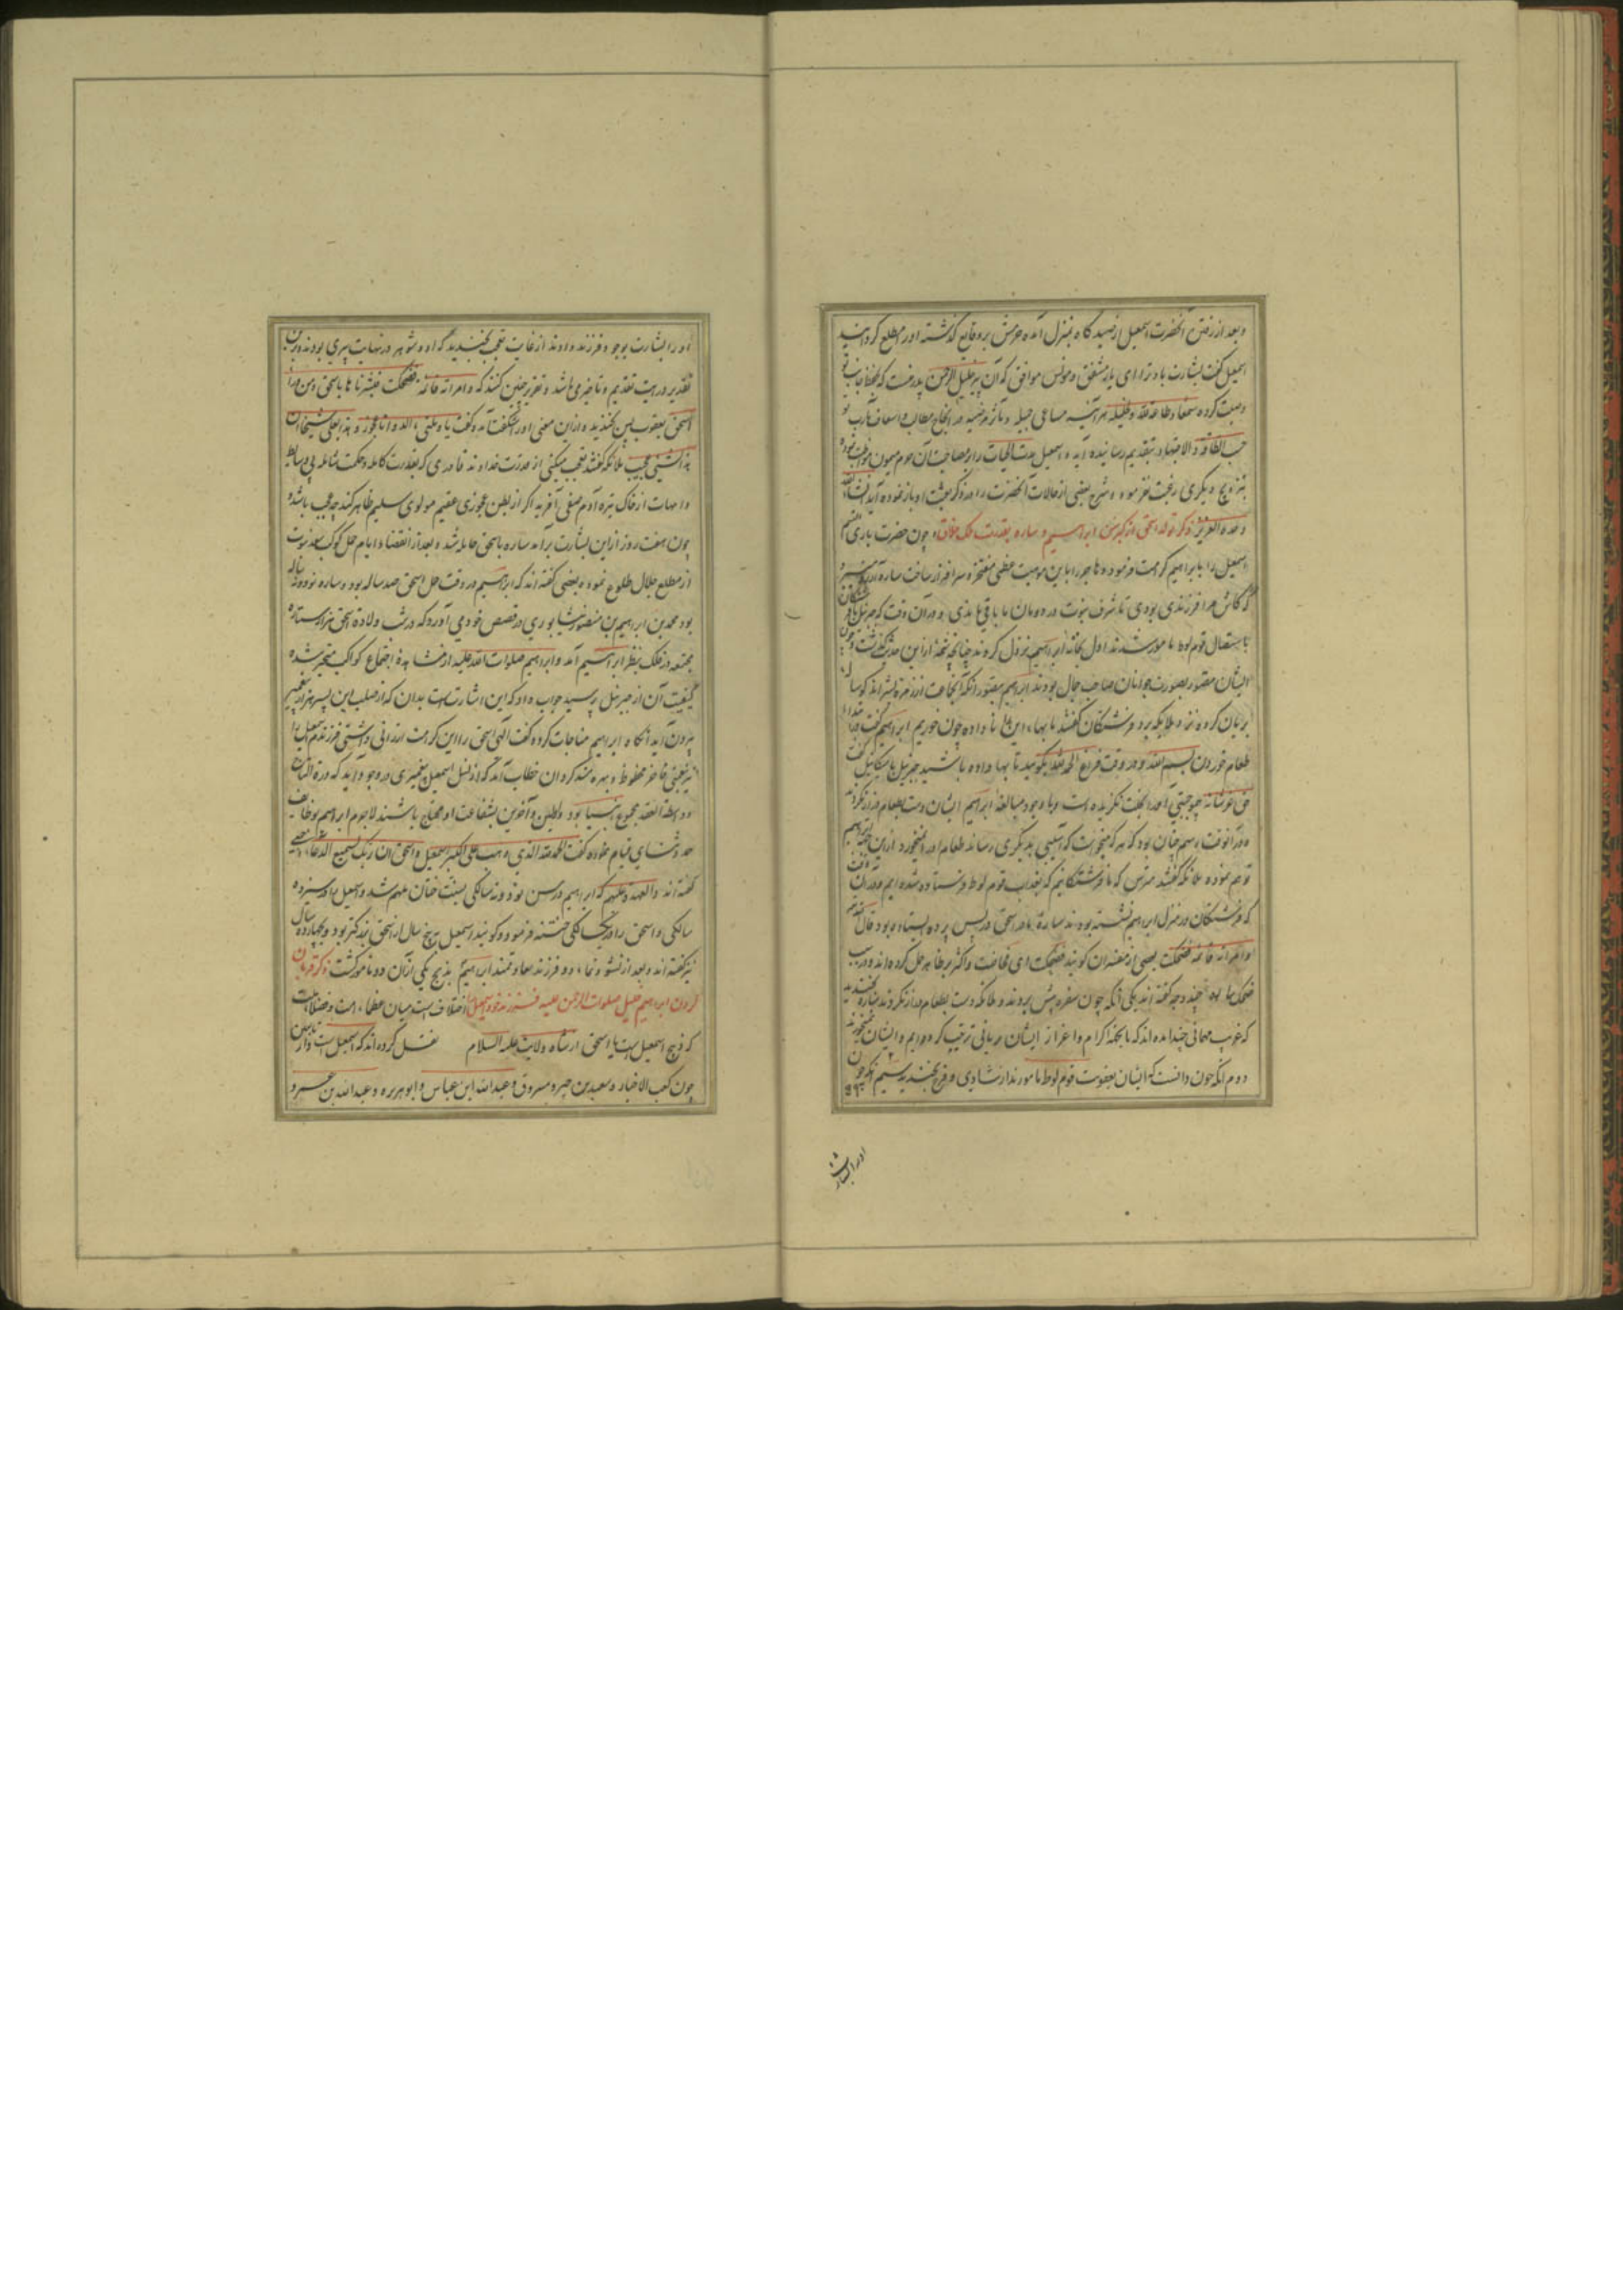 و بعد از رفتن آنحضرت اسمعیل از صیدگاه بمنزل آمده حرمش بر وقایع گذشته او را مطلع گردانید
اسمعیل گفت بشارت باد ترا ای یار مشفق و مونس موافق که آن پیر خلیل الرحمن پدر منست که بحفظ جانب تو
وصیت کرده سمعا و طاعة لله و لخلیله هر آینه مساعی جمیله و مآثر مرضیه در انجاح مطالب و اسعاف مآرب تو
حسب الطاقه و الاجتهاد بتقدیم رسانیده آید و اسمعیل مدت الحیات را بر مصاحبت آن حرم میمون موقوف نموده
بتزویج دیگری رغبت نفرمود و شرح بعضی از حالات آنحضرت را در ذکر بعثت او باز نموده آید انشاء الله
وحده العزیز ذکر تولد اسحق از کبرسن ابراهیم و ساره بقدرت ملک خلاق چون حضرت باری النسم
اسمعیل را بابراهیم کرامت فرمود و هاجر را باین موهبت عظمی مفتخر و سرافراز ساخت ساره آرزو میبرد
که کاش مرا فرزندی بودی تا شرف نبوت در دودمان ما باقی ماندی و در آن وقت که جبرئیل با فرشتگان
باستیصال قوم لوط مامور شدند اول بخانه ابراهیم نزول کردند چنانچه شمه از این حدیث گذشت و چون
ایشان مصور بصورت جوانان صاحب جمال بودند ابراهیم بتصور آنکه آنجماعت از زمره بشراند گوساله
بریان کرده نزد ملایکه برد فرشتگان گفتند ما بهاء این نا داده چون خوریم ابراهیم گفت در ابتداء
طعام خوردن بسم الله و در وقت فراغ الحمد لله بگویید تا بها داده باشید جبرئیل با میکائیل گفت
حق عز شانه بموجبی احد را بخلت نگزیده است و با وجود مبالغه ابراهیم ایشان دست بطعام دراز نکردند
و در آنوقت رسم چنان بود که هر که میخواست که آسیبی بدیگری رساند طعام او را نمیخورد از این جهة ابراهیم
توهم نموده ملائکه گفتند مترس که ما فرشتگانیم که بعذاب قوم لوط فرستاده شده ایم و در آن وقت
که فرشتگان در منزل ابراهیم نشسته بودند ساره مادر اسحق در پس پرده ایستاده بود قال الله
وامراته قائمه فضحکت بعضی از مفسران گویند فضحکت ای فحاضت و اکثر بر ظاهر حمل کرده اند و در سبب
ضحک ساره چند وجه گفته اند یکی آنکه چون سفره پیش بردند و ملائکه دست بطعام دراز نکردند ساره بخندید
که غریب مهمانی چند آمده اند که ما بجهة اکرام و اعزاز ایشان بریانی ترتیب کرده ایم و ایشان نمیخورند
دوم آنکه چون دانست که ایشان بعقوبت قوم لوط مامورند از شادی و فرح بخندید سیم آنکه چون
او را بشارت
او را بشارت بوجود فرزند دادند از غایت تعجب بخندید که او و شوهر در نهایت پیری بودند و برین
تقدیر در آیت تقدیم و تاخیری باشد و تقریر چنین کنند که وامراته قائمة فضحکت فبشرناها باسحق و من وراء
اسحق یعقوب پس بخندید و از این معنی او را شگفت آمد و گفت یا ویلتی ءالد و انا عجوز و هذا بعلی شیخا ان
هذا لشیء عجیب ملائکه گفتند تعجب میکنی از قدرت خداوند قادری که بقدرت کامله و حکمت شامله بی وسایط
و امهات از خاک تیره آدم صفی آفرید اگر از بطن عجوزی عقیم مولودی سلیم ظاهر کند چه عجب باشد
چون هفت روز از این بشارت برآمد ساره باسحق حامله شد و بعد از انقضاء ایام حمل کوکب سعد نبوت
از مطلع جلال طلوع نمود و بعضی گفته اند که ابراهیم در وقت حمل اسحق صد ساله بود و ساره نود و نه ساله
بود محمد بن ابراهیم بن منصور نیشابوری در قصص خود می آورد که در شب ولادة اسحق هزار ستاره
مجتمعه در فلک بنظر ابراهیم آمد و ابراهیم صلوات الله علیه از مشاهده اجتماع کواکب متحیر شده
کیفیت آن از جبرئیل پرسید جواب داد که این اشارتست بدان که از صلب این پسر هزار پیغمبر
بیرون آید آنگاه ابراهیم مناجات کرده گفت الهی اسحق را این کرامت ارزانی داشتی فرزندم اسمعیل را
نیز بعطیتی فاخر محظوظ و بهره مند گردان خطاب آمد که از نسل اسمعیل پیغمبری در وجود آید که درة التاج
و واسطة العقد مجموع انبیا بود و اولین و آخرین بشفاعت او محتاج باشند لاجرم ابراهیم بوظایف
حمد و ثنای قیام نموده گفت الحمد لله الذی وهب لی علی الکبر اسمعیل و اسحق ان ربی لسمیع الدعاء بعضی
گفته اند و العهدة علیهم که ابراهیم در سن نود و نه سالگی بسنت ختان ملهم شد و اسمعیل را در سیزده
سالگی و اسحق را در یکسالگی ختنه فرمود و گویند اسمعیل پنج سال از اسحق بزرگتر بود و بچهارده سال
نیز گفته اند و بعد از نشو و نماء دو فرزند سعادتمند ابراهیم بذبح یکی از آن دو مامور گشت ذکر قربان
کردن ابراهیم خلیل صلوات الرحمن علیه فرزند خود اسمعیل را اختلافست میان عظماء امت و فضلاء ملت
که ذبیح اسمعیل است یا اسحق از شاه ولایت علیه السلام نقل کرده اند که اسمعیل است و از تابعین
چون کعب الاخبار و سعید بن جبیر و مسروق و عبدالله ابن عباس و ابو هریره و عبدالله بن عمر و